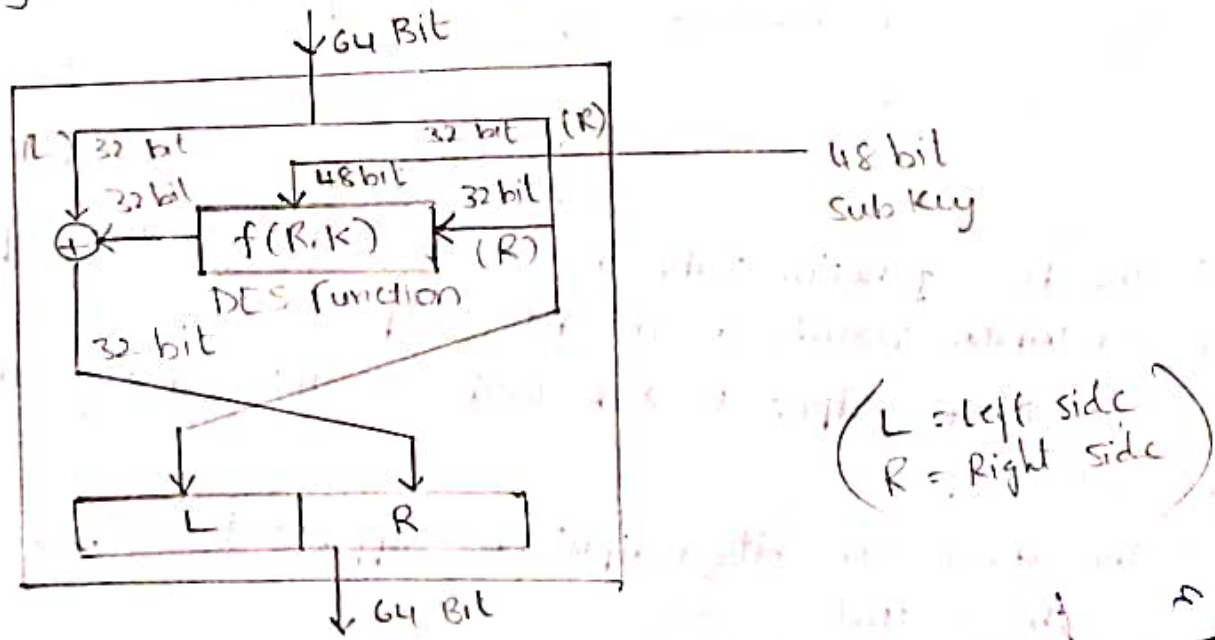 64 Bit
32 bit
32 bit
(R)
48 bit
32 bit
32 bit
48 bit
Sub Key
f(R.K)
(R)
DES function
32 bit
L = left side
R = Right side
L
R
64 Bit